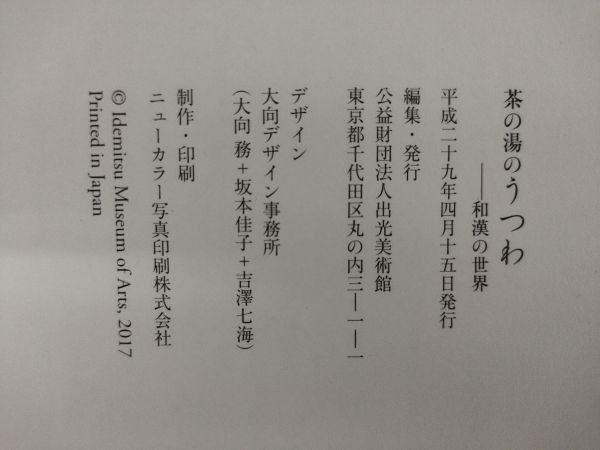 茶の湯のうつわ
――和漢の世界
平成二十九年四月十五日発行
編集・発行
公益財団法人出光美術館
東京都千代田区丸の内三―一―一
デザイン
大向デザイン事務所
(大向 務+坂本佳子+吉澤七海)
制作・印刷
ニューカラー写真印刷株式会社
© Idemitsu Museum of Arts, 2017
Printed in Japan